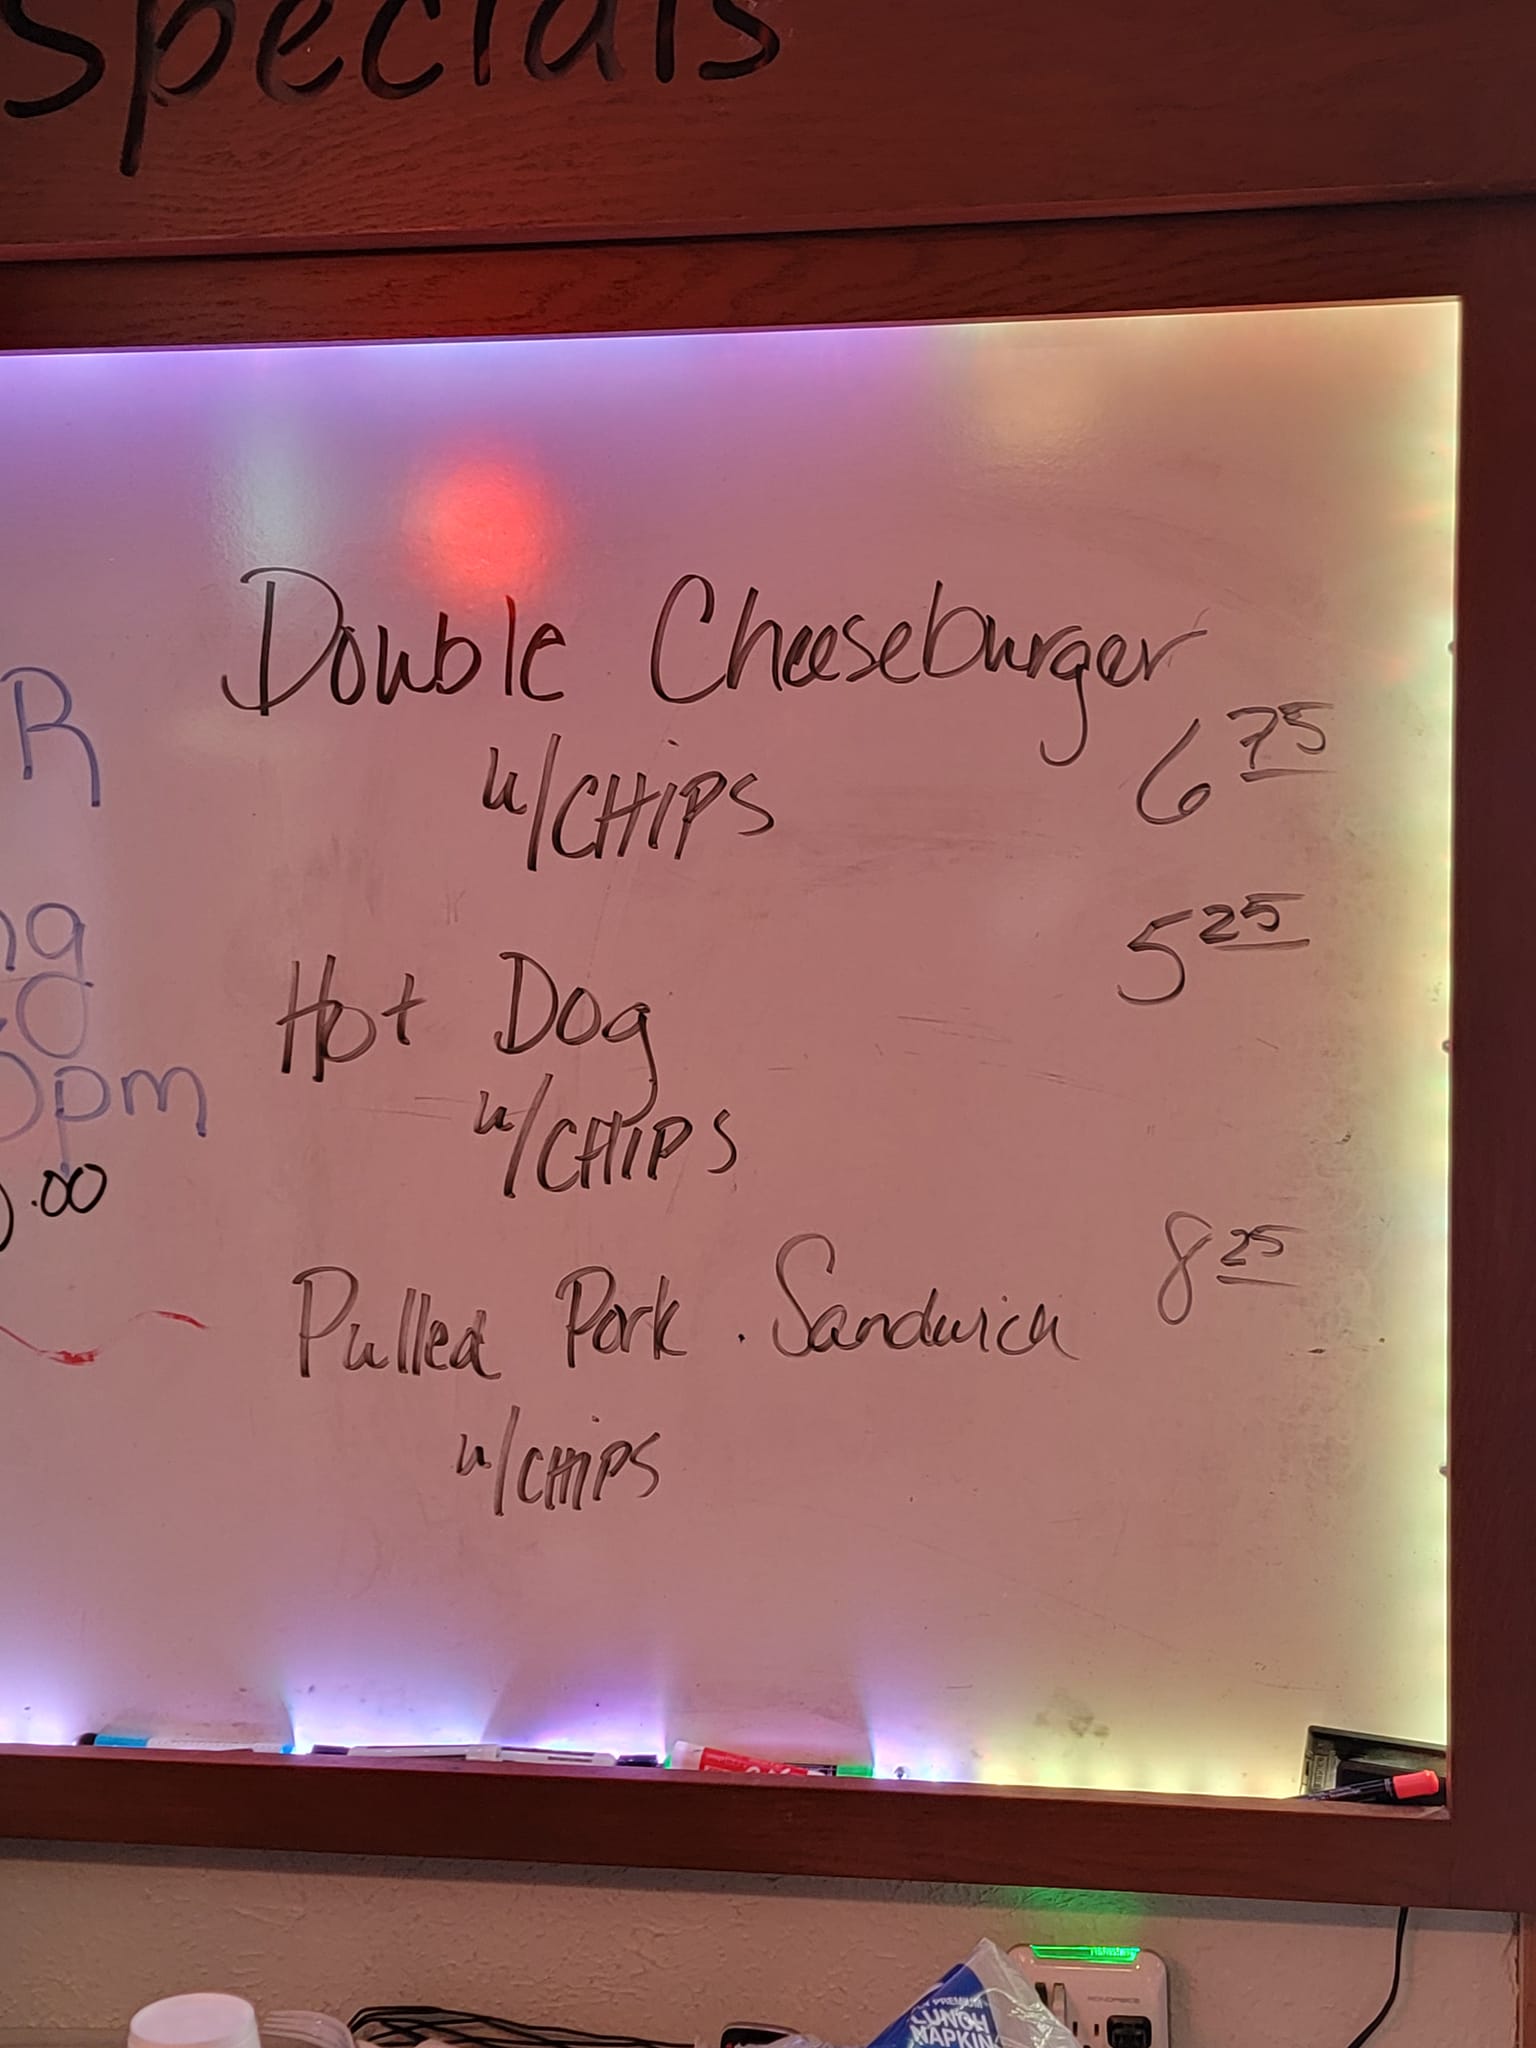 specials
Double Cheeseburger
w/CHiPS
6 75
R
5 25
Hot Dog
w/CHIPS
pm
.00
8 25
Pulled Pork . Sandwich
w/CHiPS
LUNCH
NAPKIN